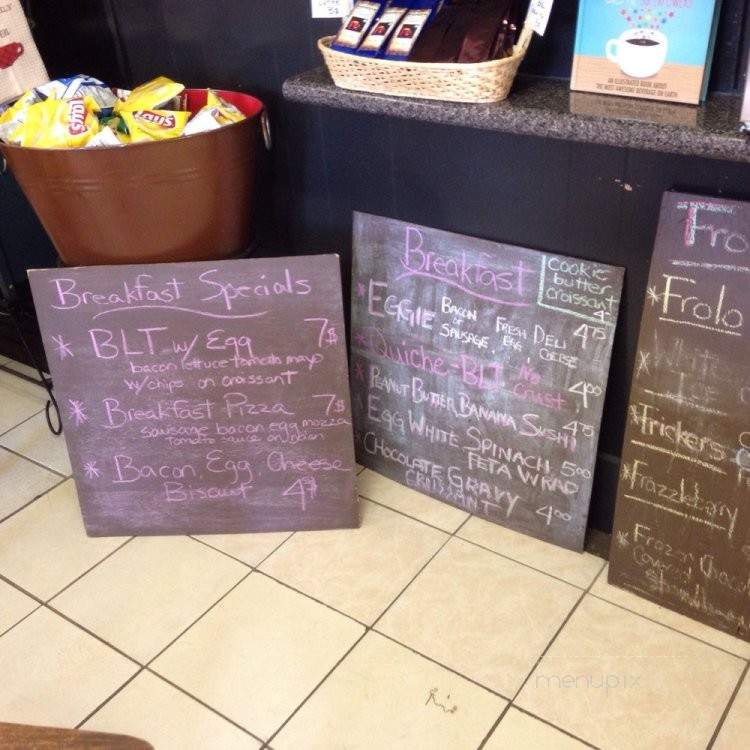 Breakfast Specials
* BLT w/ Egg 7$
bacon lettuce tomato mayo
w/chips on croissant
* Breakfast Pizza 7$
sausage bacon egg mozza
tomato sauce on naan
* Bacon, Egg, Cheese
Biscuit 4$
Breakfast
cookie
butter
croissant
4
* EGGIE BACON or SAUSAGE, FRESH EGG, DELI CHEESE 4.75
* Quiche-BLT No Crust 4.00
* PEANUT BUTTER BANANA SUSHI 4.75
EGG WHITE SPINACH
FETA WRAP 5.00
* CHOCOLATE GRAVY
CROISSANT 4.00
Fro
* Frolo
* White
Ice
* Frickers
* Frazzleberry
* Frozen Choco
Lay's
AN ILLUSTRATED BOOK ABOUT
THE MOST AWESOME BEVERAGE ON EARTH
menupix